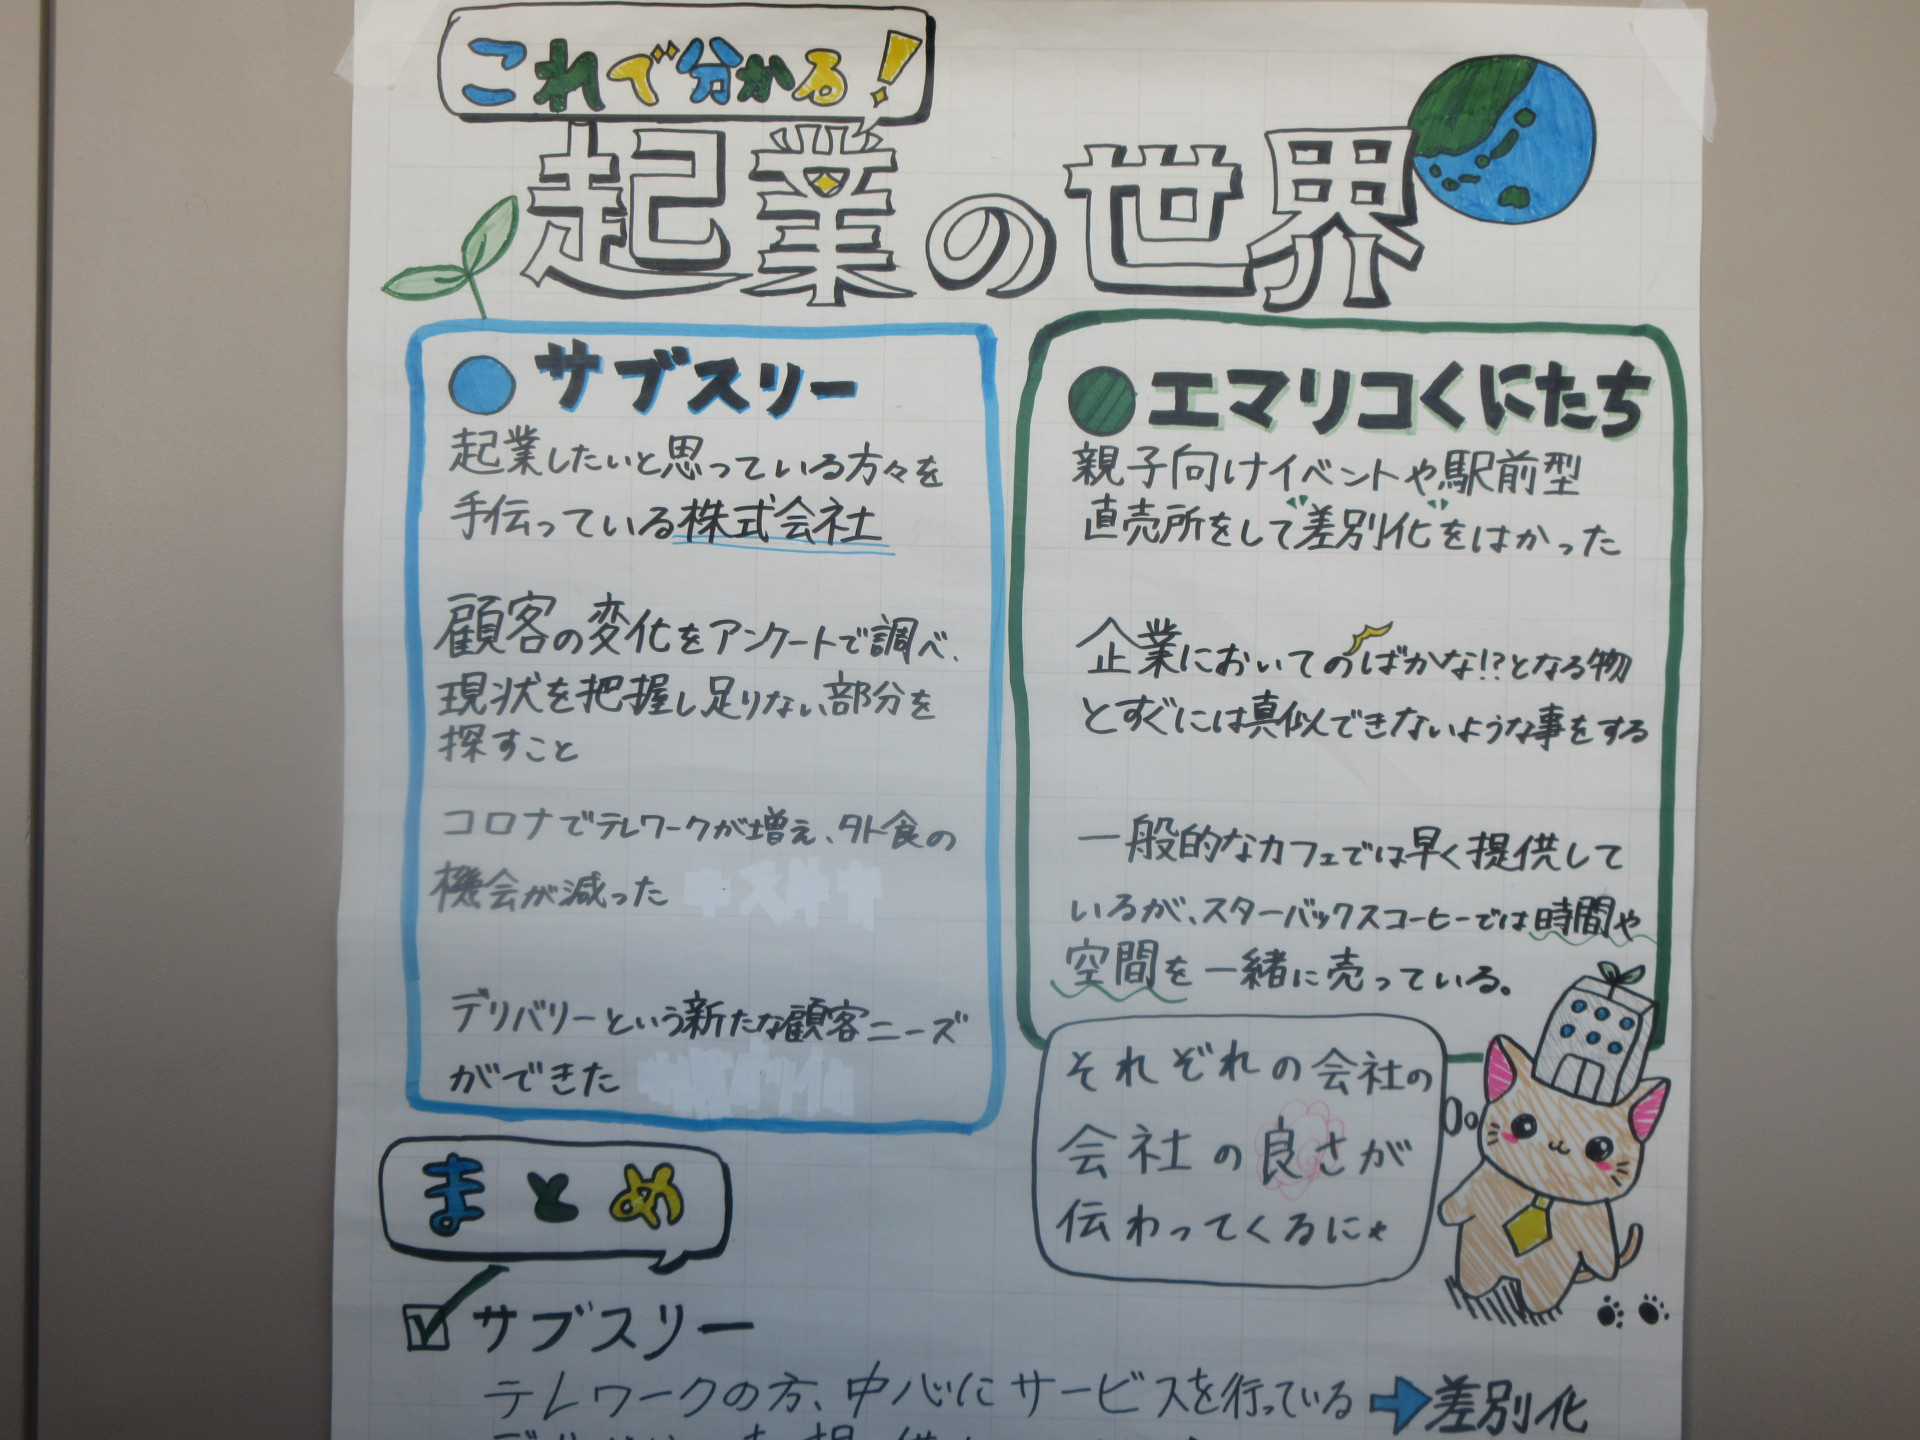 これで分かる!
起業の世界
サブスリー
起業したいと思っている方々を
手伝っている株式会社
顧客の変化をアンケートで調べ、
現状を把握し足りない部分を
探すこと
コロナでテレワークが増え、外食の
機会が減った
デリバリーという新たな顧客ニーズ
ができた
エマリコくにたち
親子向けイベントや駅前型
直売所をして差別化をはかった
企業においてのばかな!?となる物
とすぐには真似できないような事をする
一般的なカフェでは早く提供して
いるが、スターバックスコーヒーでは時間や
空間を一緒に売っている。
それぞれの会社の
会社の良さが
伝わってくるに
まとめ
サブスリー
テレワークの方、中心にサービスを行っている→差別化